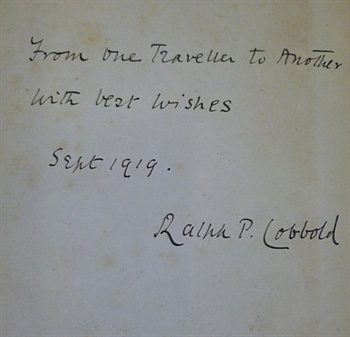 From one Traveller to Another
With best wishes
Sept 1919.
Ralph P. Cobbold